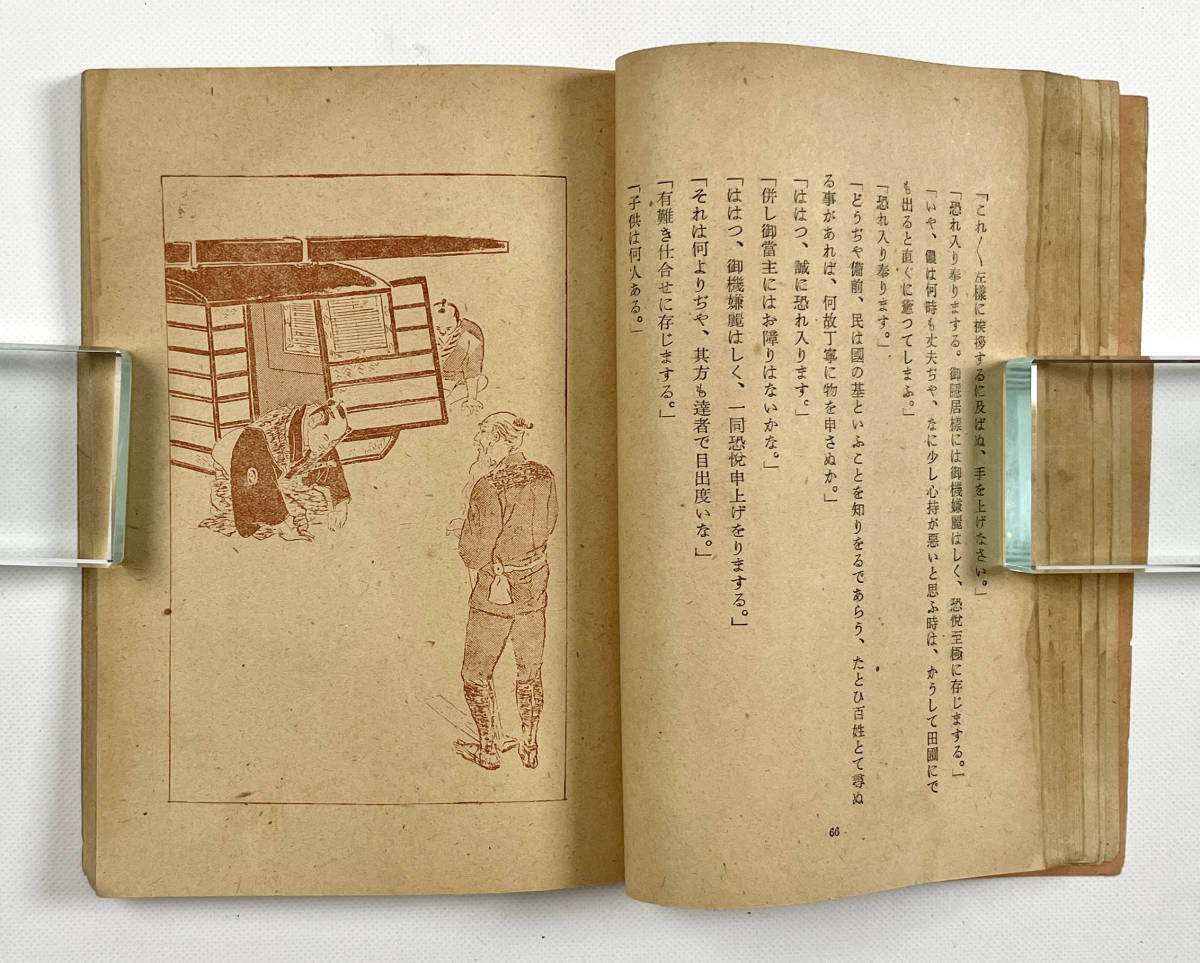 「これ〱左樣に挨拶するに及ばぬ、手を上げなさい。」
「恐れ入り奉りまする。御隱居樣には御機嫌麗はしく、恐悅至極に存じまする。」
「いや、儂は何時も丈夫ぢや、なに少し心持が惡いと思ふ時は、かうして田圃にで
も出ると直ぐに癒つてしまふ。」
「恐れ入り奉ります。」
「どうぢや備前、民は國の基といふことを知りをるであらう、たとひ百姓とて尋ぬ
る事があれば、何故丁寧に物を申さぬか。」
「ははつ、誠に恐れ入ります。」
「併し御當主にはお障りはないかな。」
「ははつ、御機嫌麗はしく、一同恐悅申上げをりまする。」
「それは何よりぢや、其方も達者で目出度いな。」
「有難き仕合せに存じまする。」
「子供は何人ある。」
66